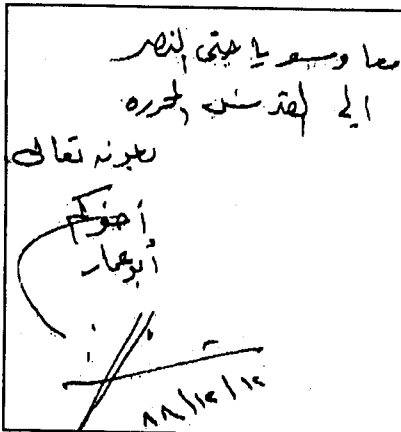 معا وسويا حتى النصر
الى القدس المحرره
بعونه تعالى
أخوكم
أبو عمار
٨٨/١٢/١٢